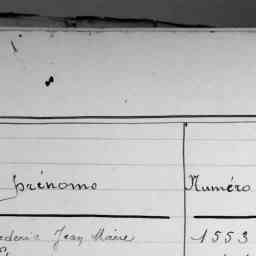 prénoms Numéro
Jean Marie 1553